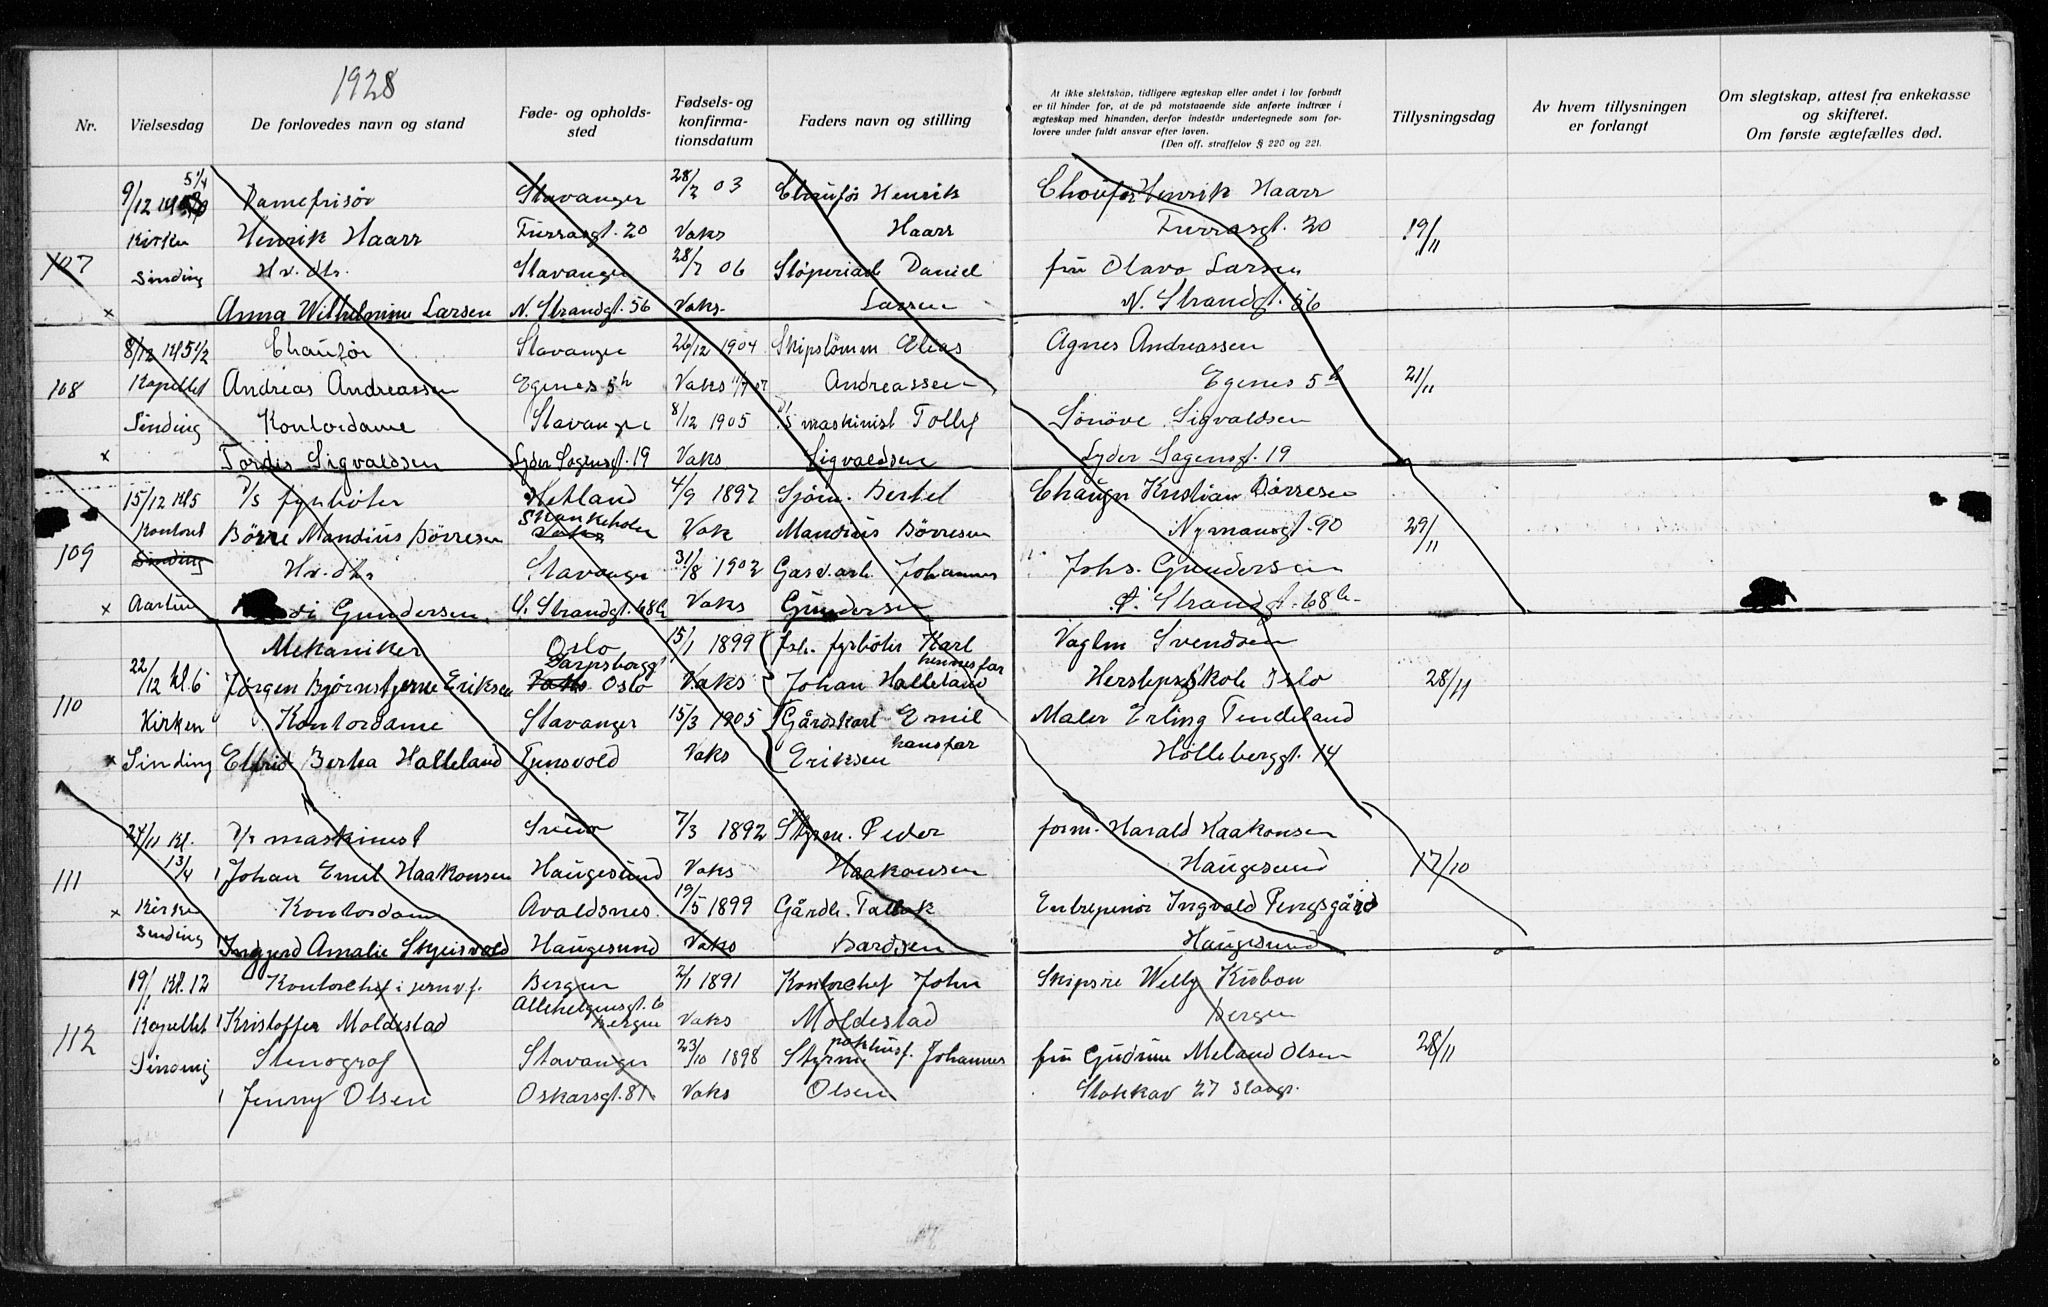 1928
Nr.
Vielsesdag
De forlovedes navn og stand
Føde- og opholds-
sted
Fødsels- og
konfirma-
tionsdatum
Faders navn og stilling
At ikke slektskap, tidligere ægteskap eller andet i lov forbudt
er til hinder for, at de på motstaaende side anførte indtrær i
ægteskap med hinanden, derfor indestår undertegnede som for-
lovere under fuldt ansvar efter loven.
(Den off. straffelov § 220 og 221.
Tillysningsdag
Av hvem tillysningen
er forlangt
Om slegtskap, attest fra enkekasse
og skifteret.
Om første ægtefælles død.
5 1/4
9/12 Damefrisør Stavanger 28/2 03 Chaufør Henrik Choufør Henrik Haarr
Kirken Henrik Haarr Furrasgt. 20 Vaks Haarr Furrasgt. 20 19/11
107 Sinding Hv. dtr. Stavanger 28/7 06 Støperiarb Daniel fru Olava Larsen
x Anna Wilhelmine Larsen N. Strandgt. 56 Vaks. Larsen N. Strandgt. 56
8/12 Kl 5 1/2 Chaufør Stavanger 26/12 1904 Skipstømm Elias Agnes Andreassen
108 Kapellet Andreas Andreassen Egenes 5h Vaks Andreassen Egenes 5h 21/11
Sinding Kontordame Stavanger 8/12 1905 D/s maskinist Tollef Sønöve Sigvaldsen
x Tordis Sigvaldsen Lyder Sagensgt. 19 Vaks Sigvaldsen Lyder Sagensgt. 19
15/12 Kl 5 D/s fyrbøter Hetland 4/9 1897 Sjøm. Bertel Kristian Børresen
109 Kontoret Børre Mandius Børresen Skankeholm Vak Mandius Børresen Nymansgt. 90 29/11
Sinding Hv. dtr. Stavanger 31/8 1902 Gasv. arb. Johannes Johs. Gundersen
x Gundersen Ø. Strandgt. 68b Vaks Gundersen Ø. Strandgt. 68b
Mekaniker Oslo 15/1 1899 fyrbøter Karl Vaglm Svendsen
Sarpsborggt hennes far
22/12 Kl. 6 Jørgen Bjørnstjerne Eriksen Vaks Oslo Vaks Johan Halleland Herslepsskole Oslo 28/11
110 Kirken Kontordame Stavanger 15/3 1905 Gårdskarl Emil Maler Erling Tendeland
x Sinding Elfrid Berta Halleland Tjensvold Vaks Eriksen hans far Holleberggt. 14
27/11 Kl. D/s maskinist Sveio 7/3 1892 Styrm. Peder form. Harald Haakonsen
111 1 3/4 Johan Emil Haakonsen Haugesund Vaks Haakonsen Haugesund 17/10
x Kirken Kontordame Avaldsnes. 19/5 1899 Gårdb. Entreprenør Ingvald
Sinding Ingjerd Amalie Skjeisvold Haugesund Vaks Bardsen Haugesund
19/1 Kl. 12 Kontorchef i jernv.f. Bergen 2/1 1891 Kontorchef John Skipsre Welly Kubon
112 Kapellet Kristoffer Moldestad Allehelgensgt. 6 Bergen Vaks Moldestad Bergen
Sinding Stenograf Stavanger 23/10 1898 Styrm pakhusf. Johannes fru Gudrun Meland Olsen 28/11
Jenny Olsen Oskarsgt. 81 Vaks Olsen Stokkav 27 Stavgr.